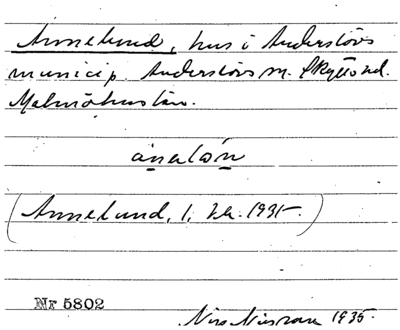 Annelund, hus i Anderslövs
municip. Anderslövs sn. Skytts hd.
Malmöhus län.
(Annelund, 1, 1931.)
Nr 5802
Nils Nilsson 1935.